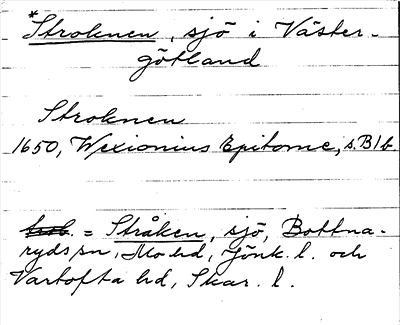 *Stroknen, sjö i Väster-
götland
Stroknen
1650, Wexionius Epitome, s. B1b.
= Stråken, sjö, Bottna-
ryds sn, Mo hd, Jönk. l. och
Vartofta hd, Skar. l.